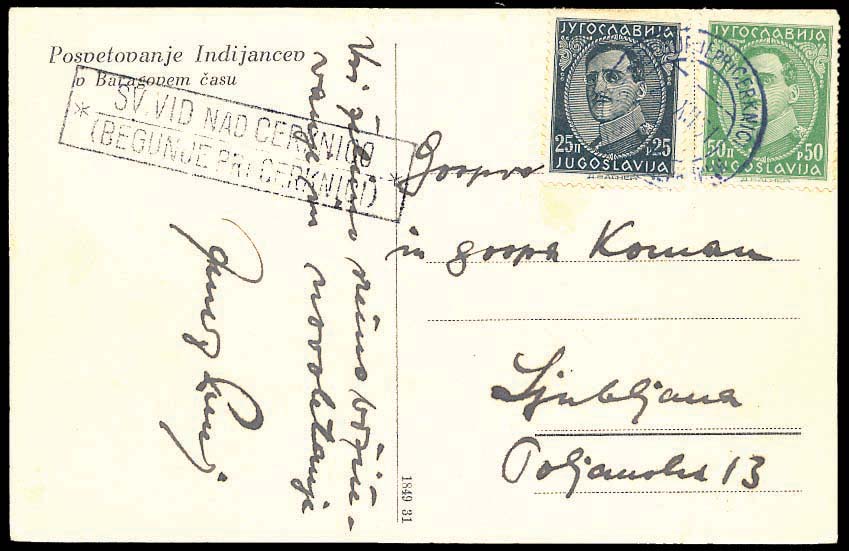 Posvetovanje Indijancev
v Baragovem času
* SV. VID NAD CERKNICO
(BEGUNJE PRI CERKNICI) *
ЈУГОСЛАВИЈА
25п p25
JUGOSLAVIJA
ЈУГОСЛАВИЈА
50п p50
JUGOSLAVIJA
PRI CERKNICI
Gospod
in gospa Koman
Ljubljana
Poljanska 13
Vsi želimo
novoletanje
1849 31